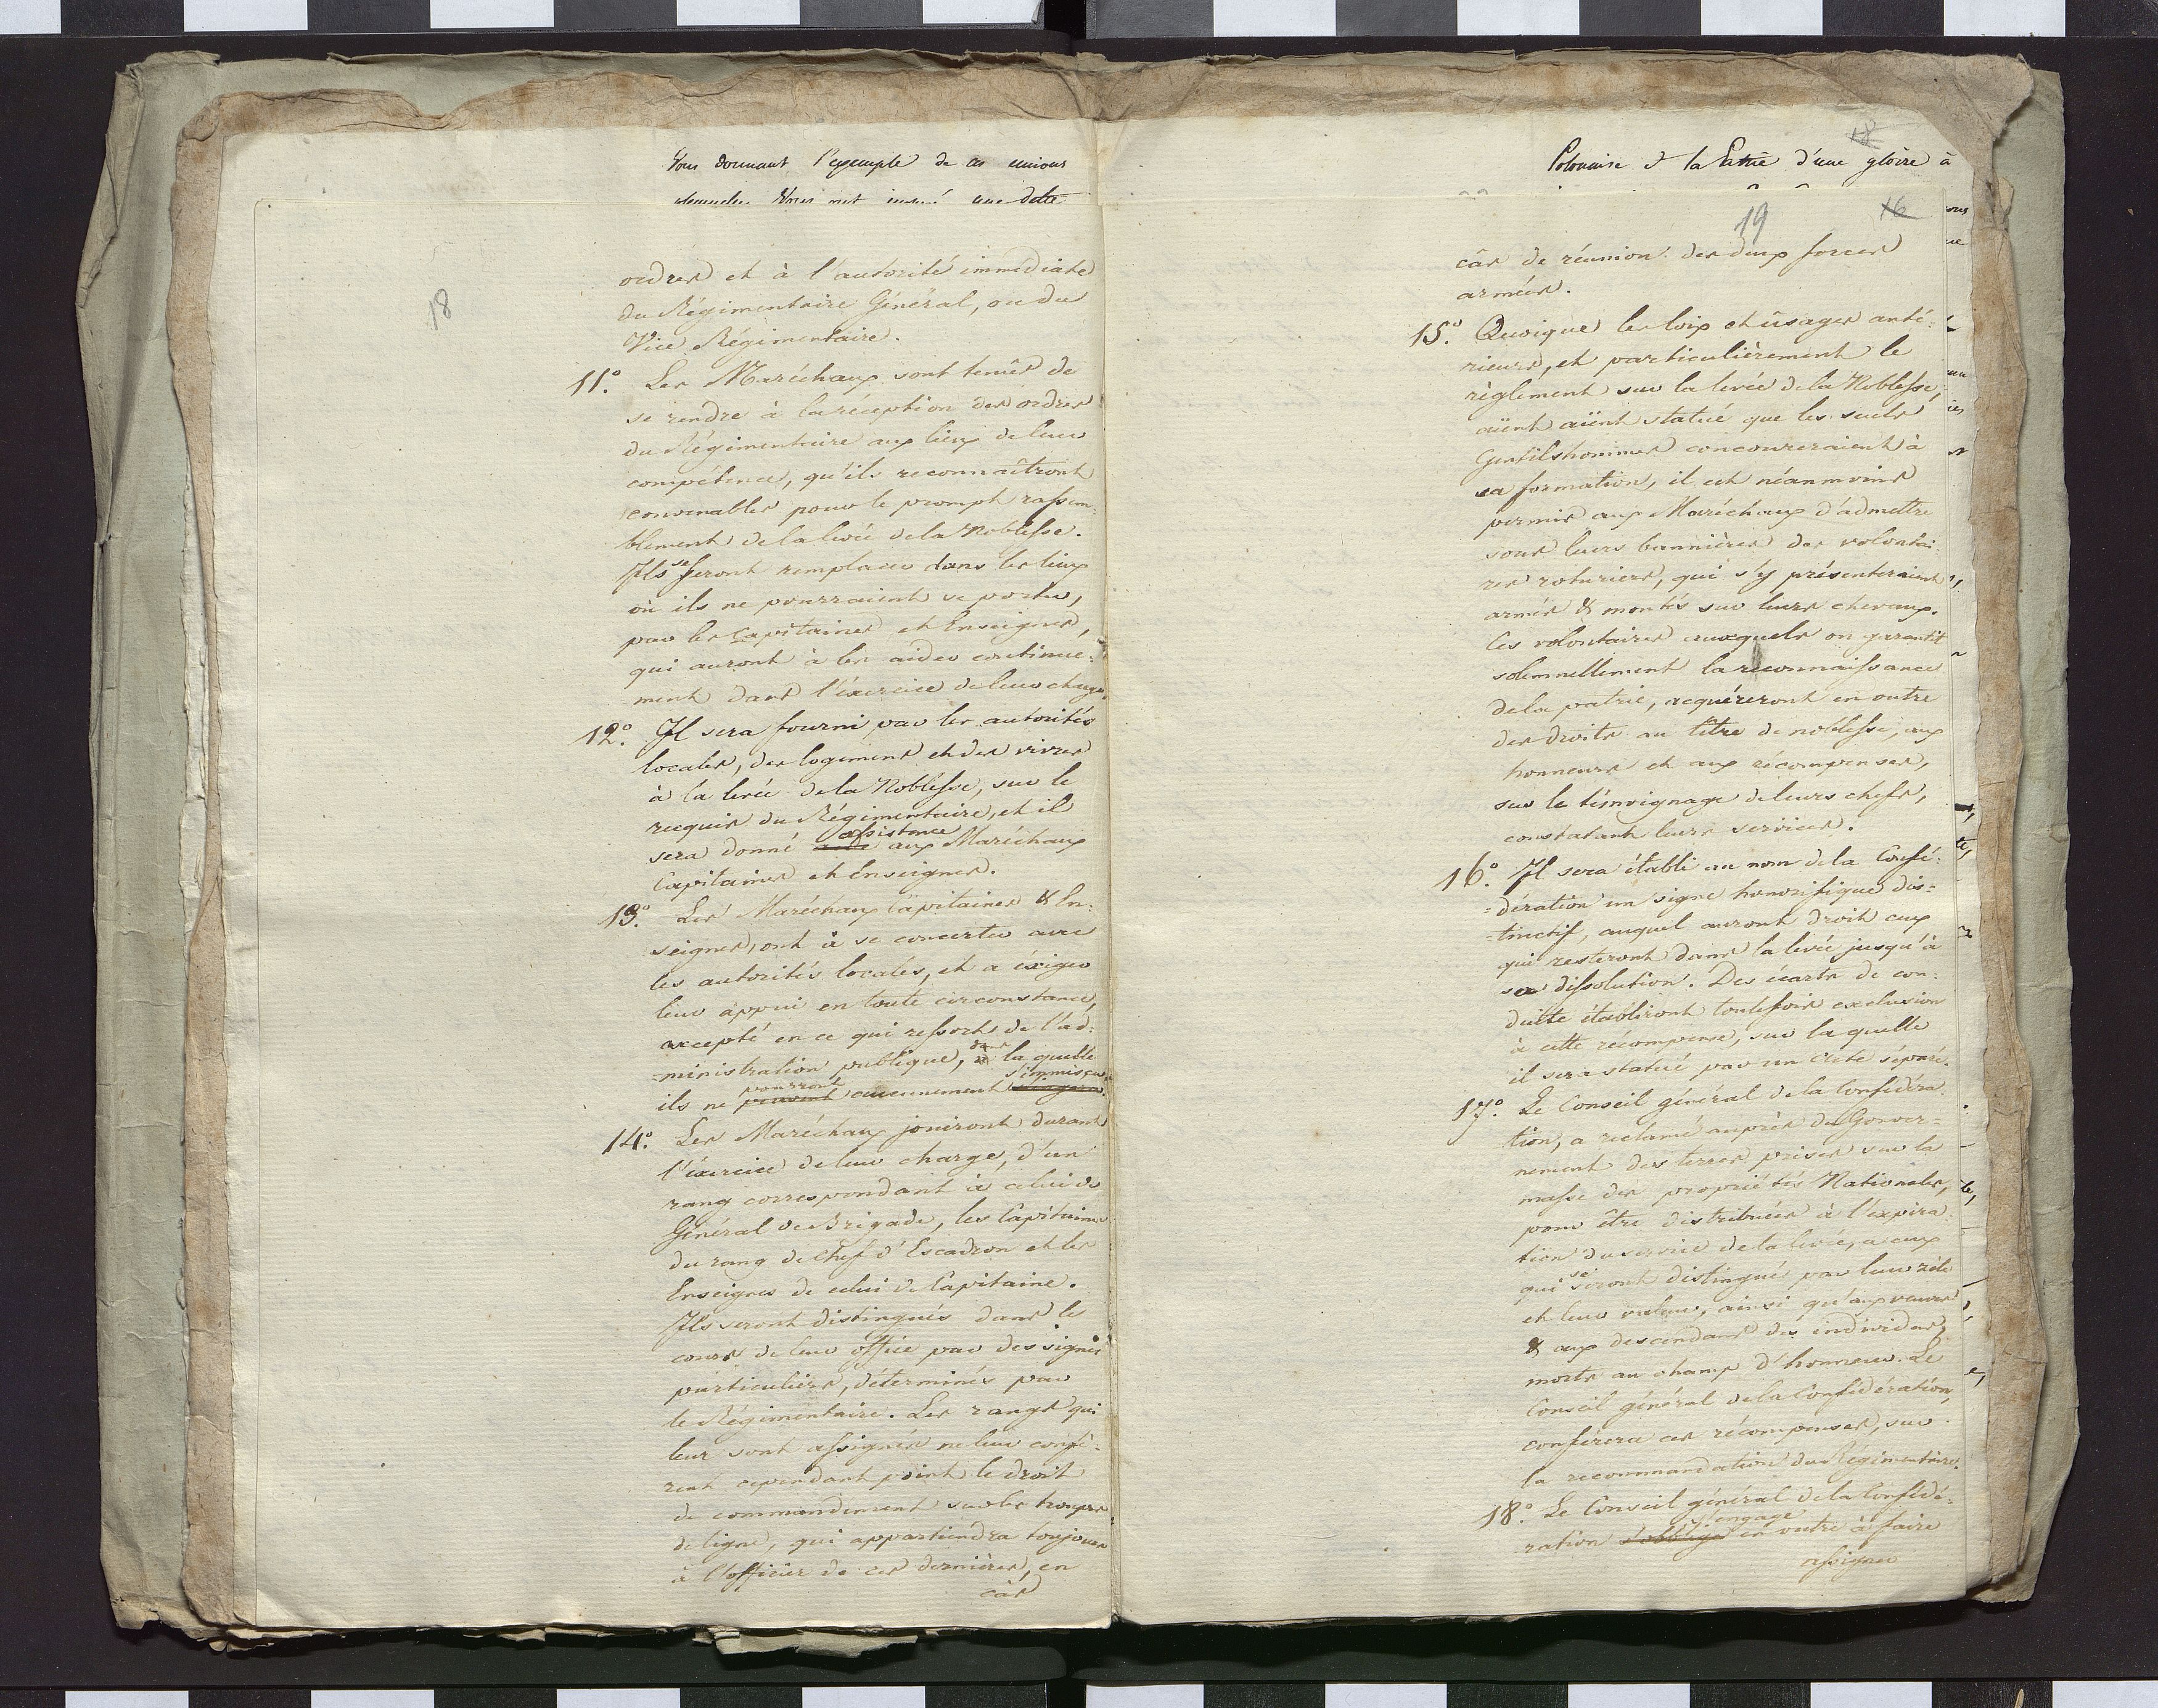 Vous donnant l'exemple de ces unions
Vous ont une dette
18
ordres et à l'autorité immédiate
du Régimentaire Général, ou du
Vice Régimentaire.
11.° Les Maréchaux sont tenûs de
se rendre à la réception des ordres
du Régimentaire aux lieux de leur
compétence, qu'ils reconnaîtront
convenables pour le prompt rassem-
blement de la levée de la Noblesse.
Ils se feront remplacer dans les lieux
où ils ne pourraient se porter,
par les Capitaines et Enseignes,
qui auront à les aider continue-
ment dans l'éxercice de leur charge.
12.° Il sera fourni par les autorités
locales, des logemens et des vivres
à la levée de la Noblesse, sur le
requis du Régimentaire, et il
sera donné aide assistance aux Maréchaux
Capitaines et Enseignes.
13.° Les Maréchaux Capitaines & En-
seignes, ont à se concerter avec
les autorités locales, et a éxiger
leur appui en toute circonstance,
excepté en ce qui ressort de l'ad-
ministration publique, dans la quelle
ils ne peuvent pourront aucunement s'immiscer.
14.° Les Maréchaux jouiront durant
l'éxercice de leur charge, d'un
rang correspondant à celui de
Général de Brigade, les Capitaines
du rang de Chef d'Escadron et les
Enseignes de celui de Capitaine.
Ils seront distingués dans le
cours de leur office par des signes
particuliers, déterminés par
le Régimentaire. Les rangs qui
leur sont assignés ne leur confè-
rent cependant point le droit
de commandement sur les troupes
de ligne, qui appartiendra toujours
à l'officier de ces dernières, en
câs
18
Polonaise & la Patrie d'une gloire à
19 16
câs de réunion des deux forces
armées.
15.° Quoique les loix et ûsages anté-
rieurs, et particulièrement le
règlement sur la levée de la Noblesse,
aïent aïent statué que les seuls
Gentilshommes concoureraient à
sa formation, il est néanmoins
permis aux Maréchaux d'admettre
sous leurs bannières des volontai-
res roturiers, qui s'y présenteraient
armés & montés sur leurs chevaux.
Ces volontaires auxquels on garantit
solemnellement la reconnaissance
de la patrie, acquéreront en outre
des droits au titre de noblesse, aux
honneurs et aux récompenses,
sur le témoignage de leurs chefs,
constatant leurs services.
16.° Il sera établi au nom de la Confé-
dération un signe honorifique dis-
tinctif, auquel auront droit ceux
qui resteront dans la levée jusqu'à
sa dissolution. Des écarts de con-
duite établiront toutefois exclusion
à cette récompense, sur la quelle
il sera statué par un Acte séparé.
17.° Le Conseil général de la Confédéra-
tion, a réclamé auprès du Gouver-
nement des terres prises sur la
masse des propriétés Nationales,
pour être distribuées à l'expira-
tion du service de la levée, a ceux
qui se seront distingués par leur zèle
et leur valeur, ainsi qu'aux veuves
& aux descendans des individus,
morts au champ d'honneur. Le
Conseil général de la Confédération,
conférera ces récompenses, sur
la recommandation du Régimentaire.
18.° Le Conseil général de la Confédé-
ration s'oblige s'engage en outre à faire
assigner